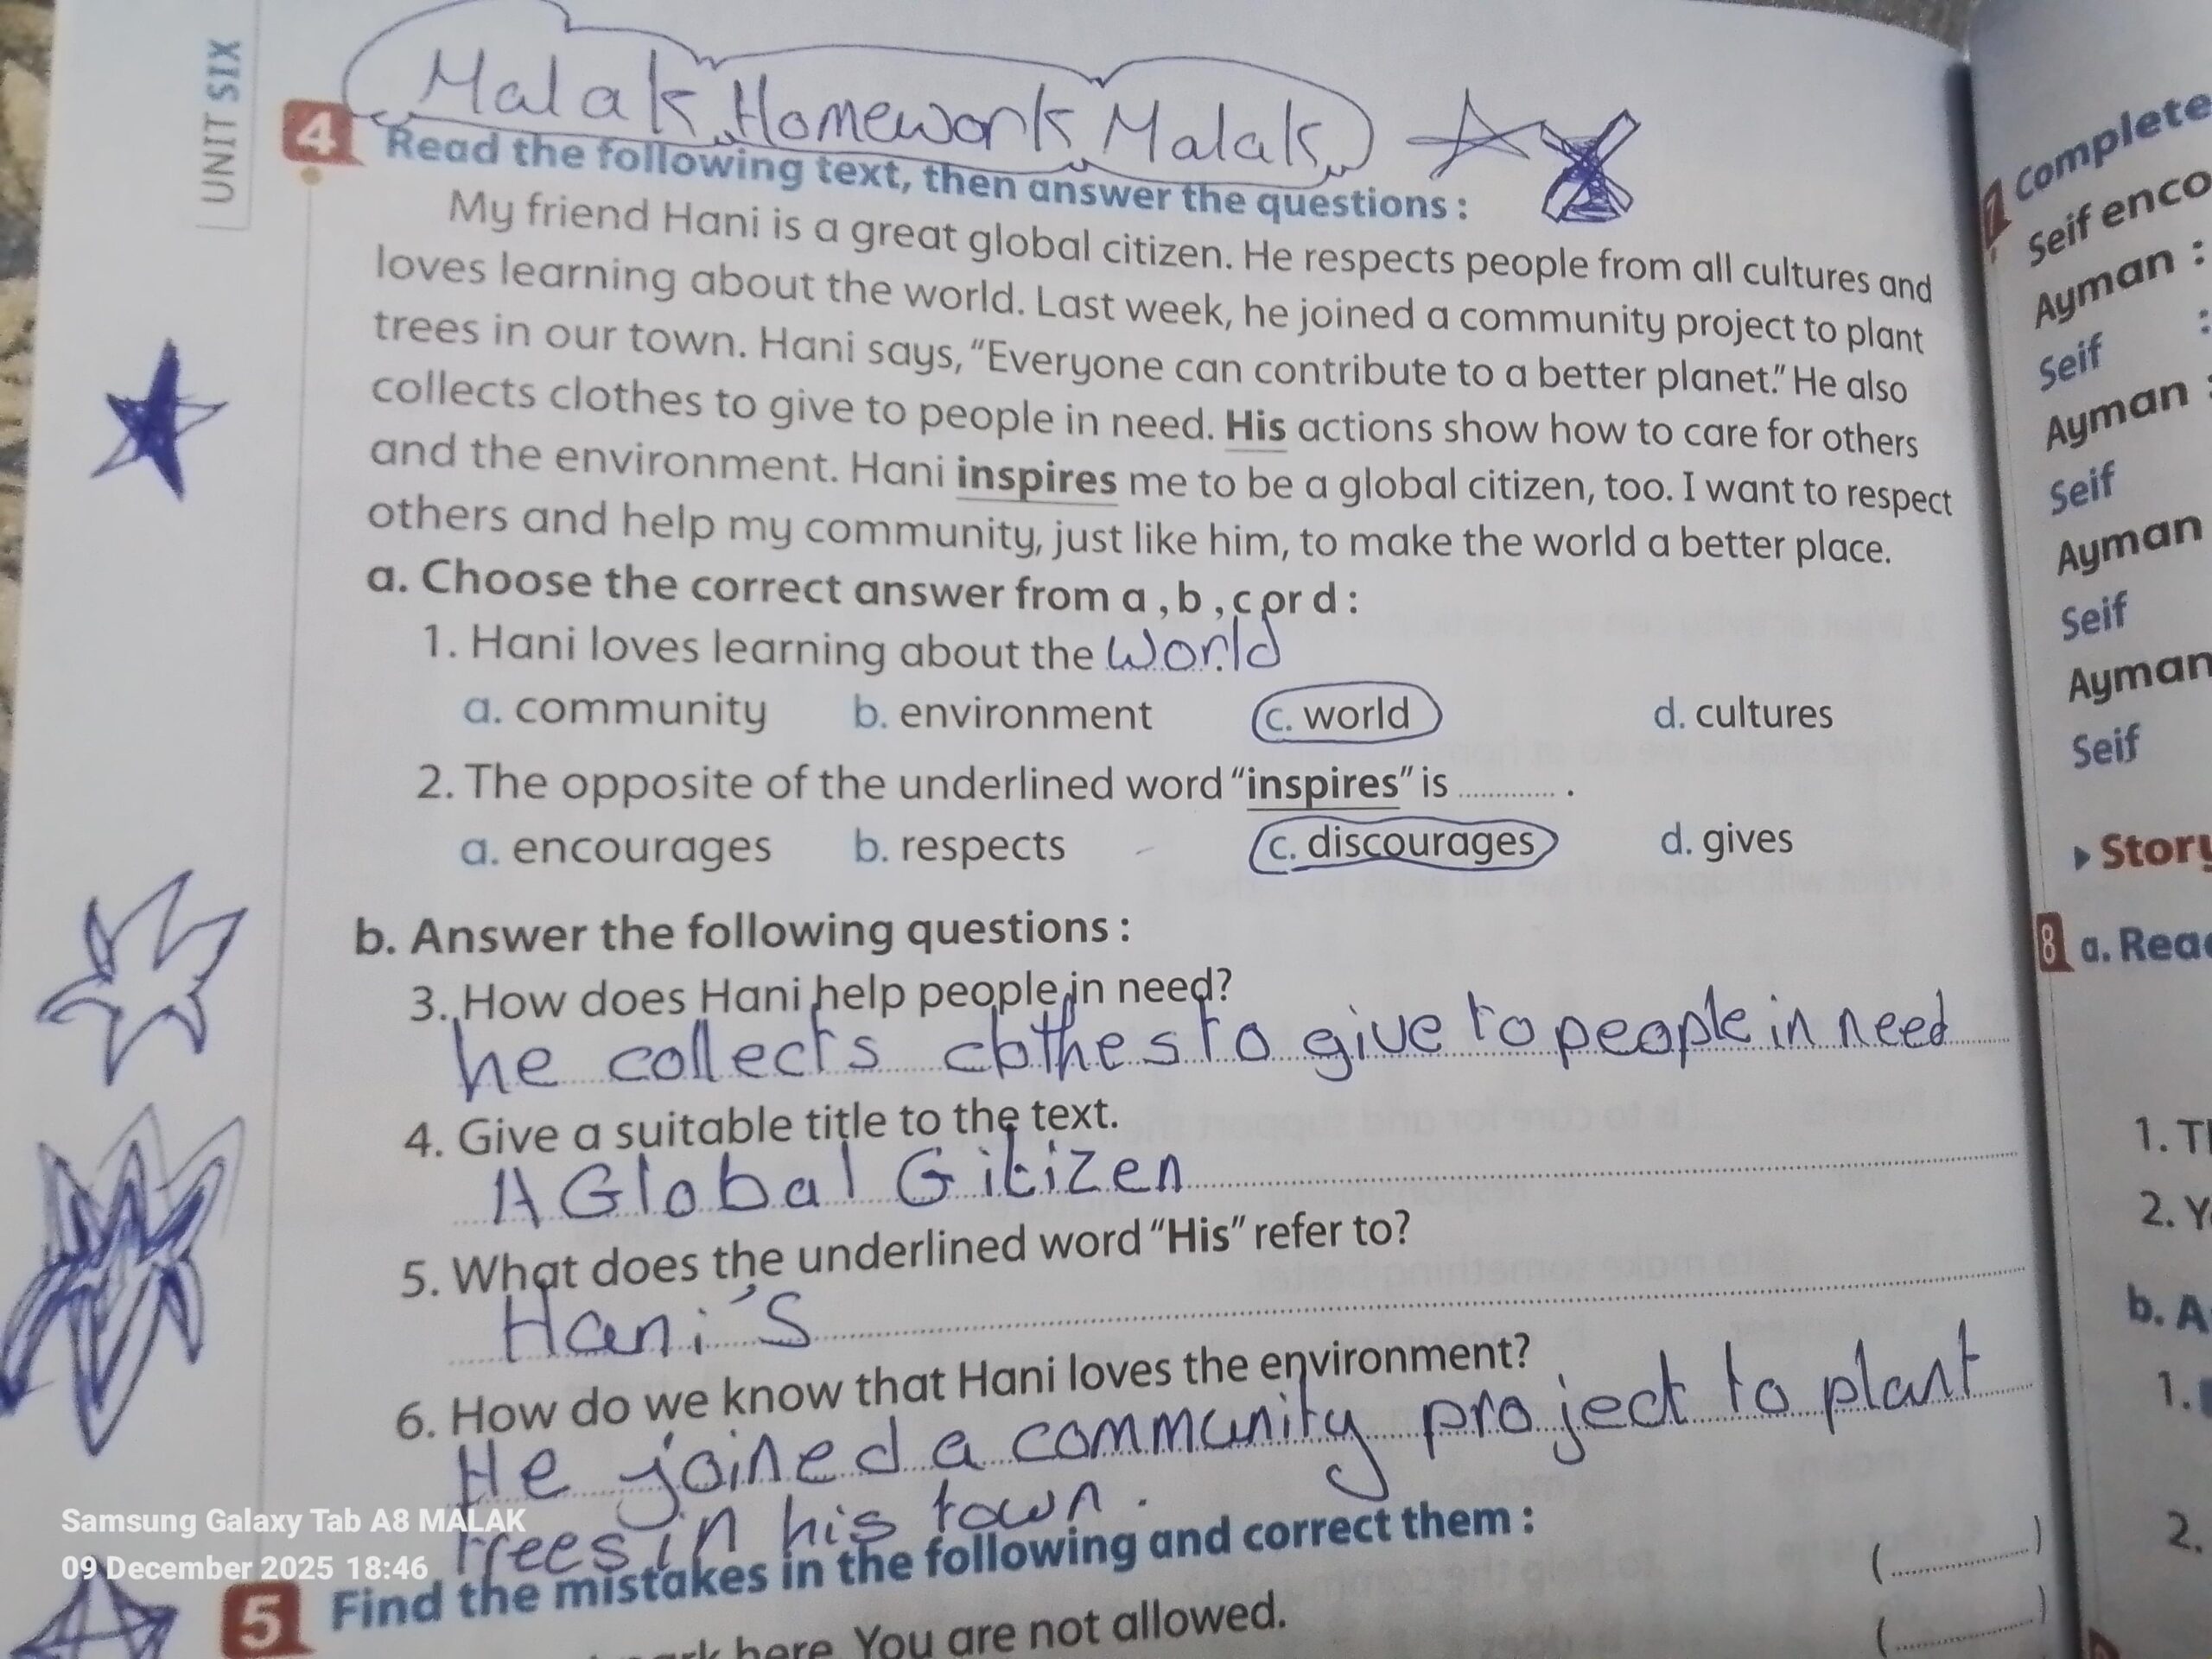 UNIT SIX
Malak Homework Malak
4 Read the following text, then answer the questions :
My friend Hani is a great global citizen. He respects people from all cultures and
loves learning about the world. Last week, he joined a community project to plant
trees in our town. Hani says, “Everyone can contribute to a better planet.” He also
collects clothes to give to people in need. His actions show how to care for others
and the environment. Hani inspires me to be a global citizen, too. I want to respect
others and help my community, just like him, to make the world a better place.
a. Choose the correct answer from a , b , c or d :
1. Hani loves learning about the world
a. community b. environment c. world d. cultures
2. The opposite of the underlined word “inspires” is ............ .
a. encourages b. respects c. discourages d. gives
b. Answer the following questions :
3. How does Hani help people in need?
he collects clothes to give to people in need
4. Give a suitable title to the text.
A Global Gitizen
5. What does the underlined word “His” refer to?
Hani's
6. How do we know that Hani loves the environment?
He joined a community project to plant
trees in his town.
5 Find the mistakes in the following and correct them :
(............)
here. You are not allowed. (............)
7 Complete
Seif enco
Ayman :
Seif :
Ayman :
Seif
Ayman
Seif
Ayman
Seif
Story
8 a. Rea
1. T
2. Y
b. A
1.
2.
Samsung Galaxy Tab A8 MALAK
09 December 2025 18:46